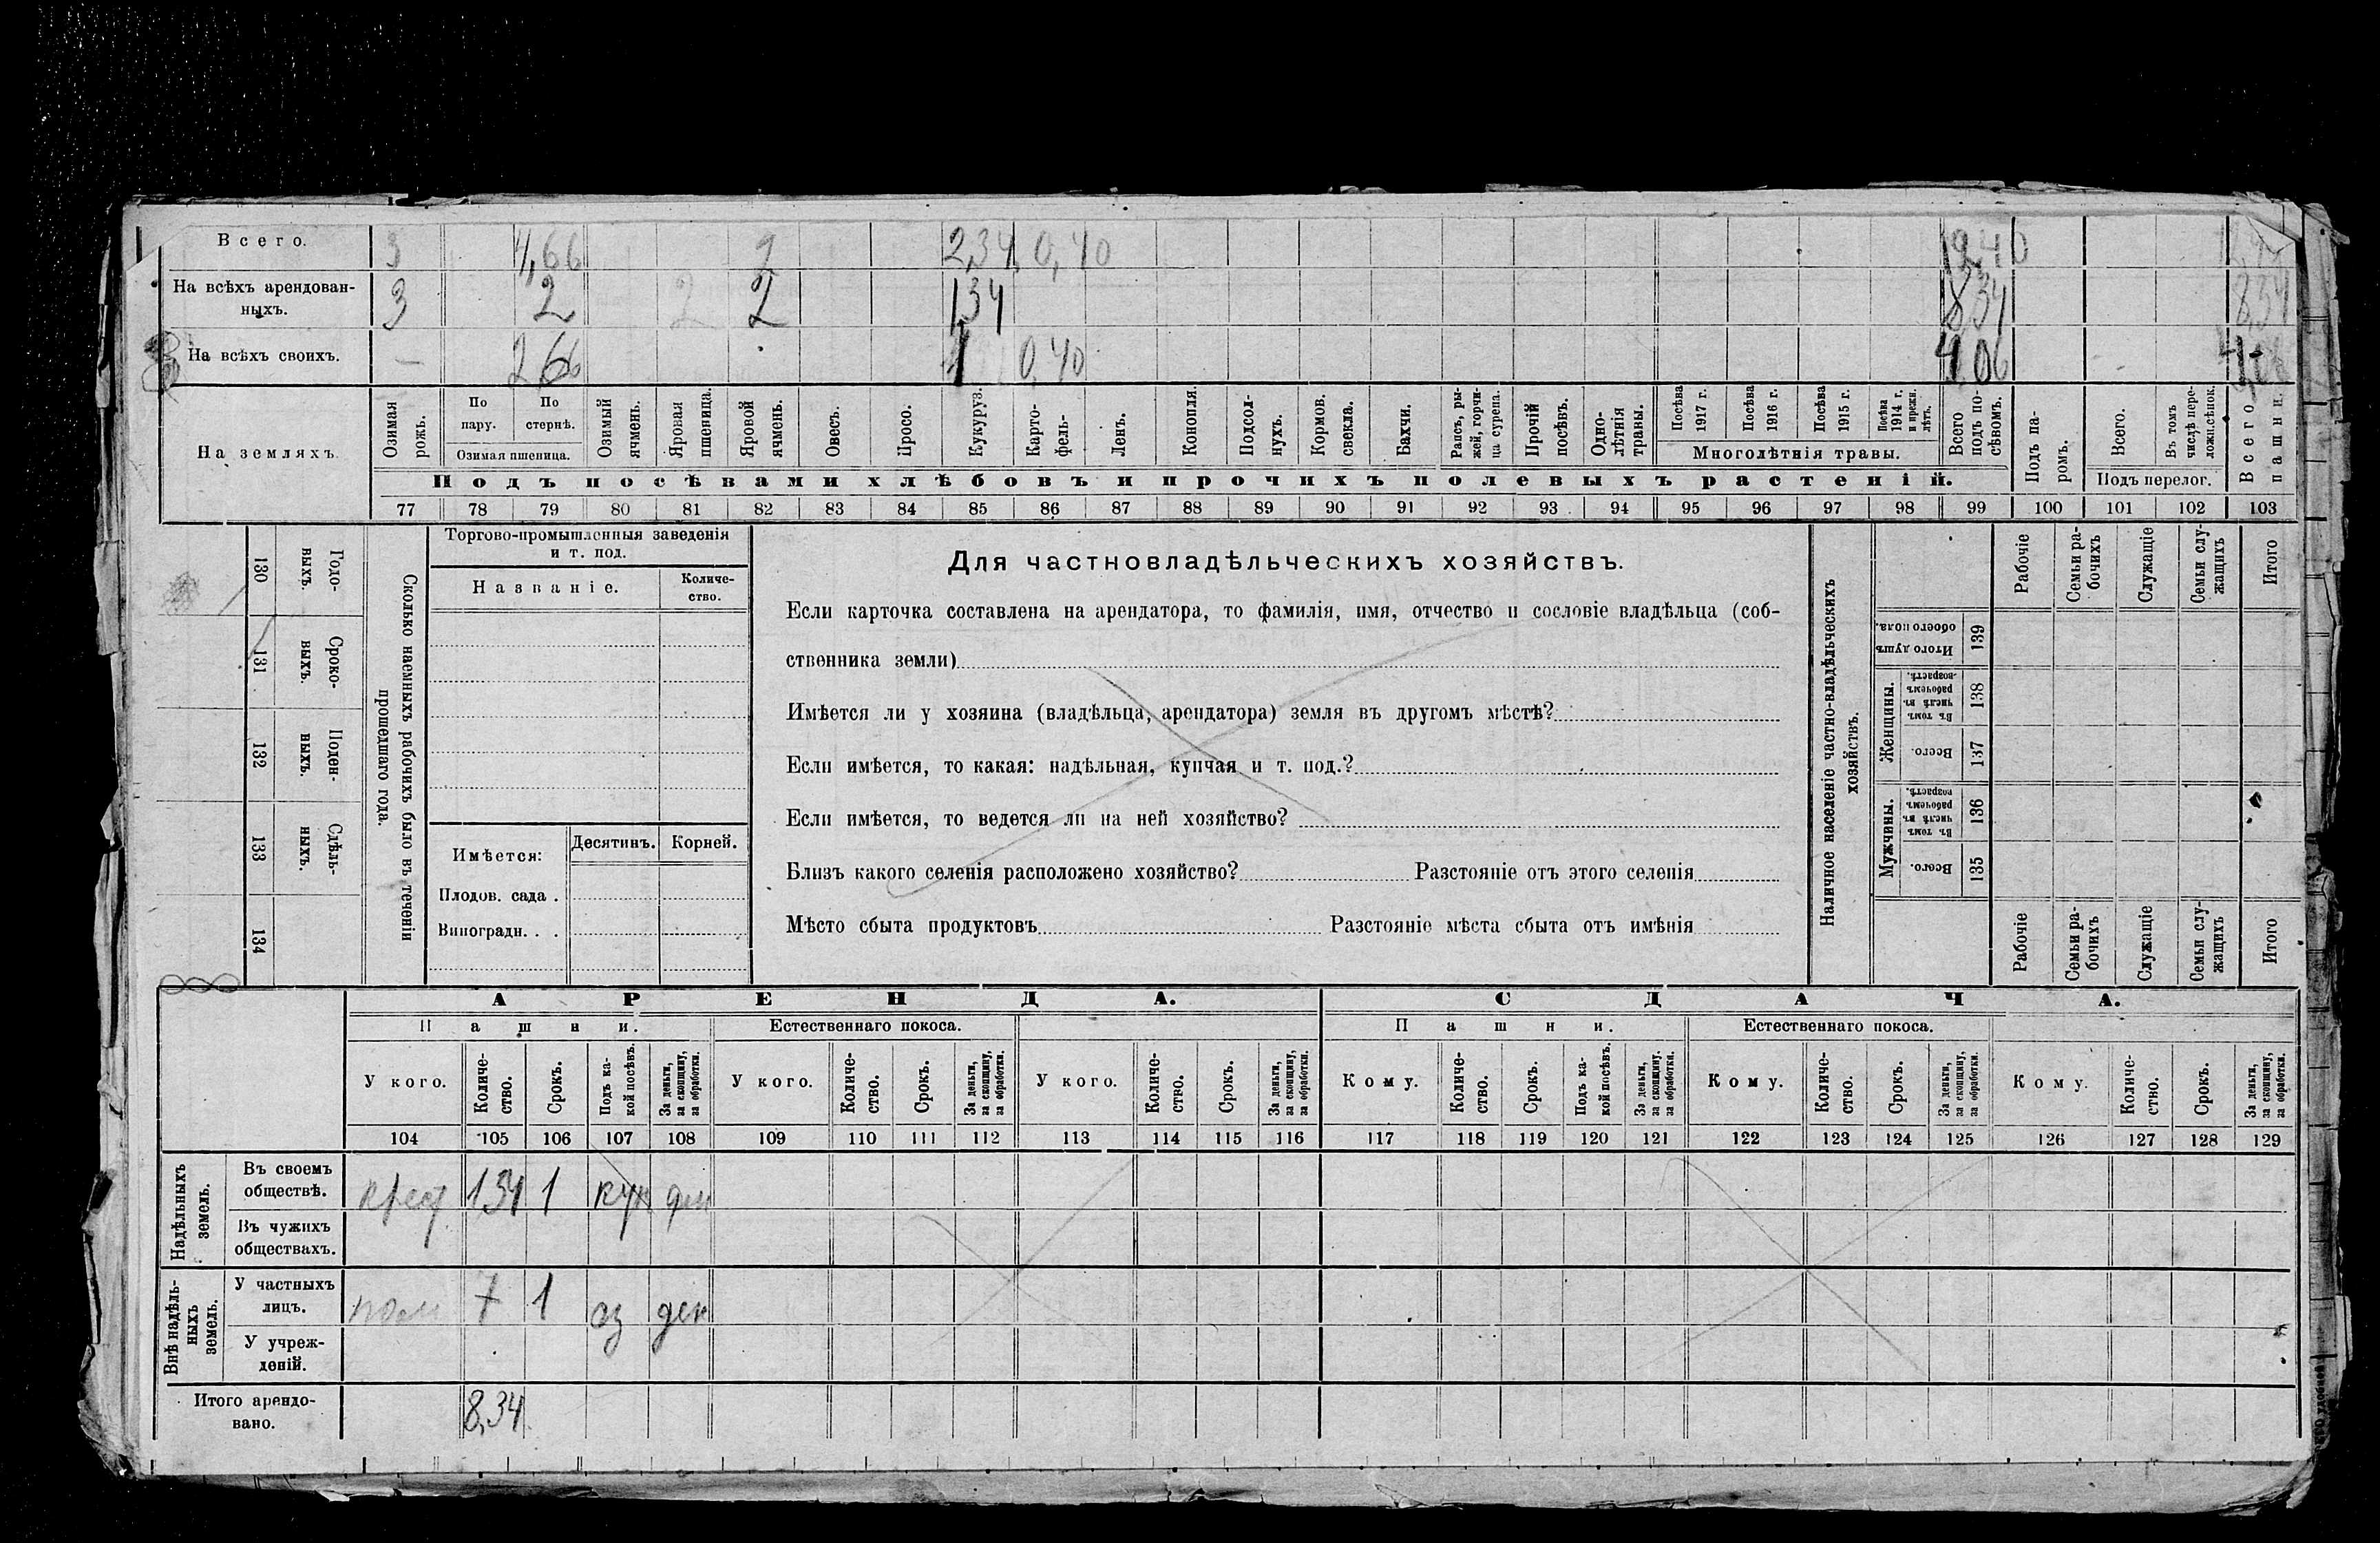 Всего. 3 4,66 2 2,34 0,40 12,40
На всѣхъ арендован-
ныхъ. 3 2 2 2 1,34 8,34 8,34
На всѣхъ своихъ. — 2,66 1 0,40 4,06 4,06
На земляхъ.
Озимая
рожь.
По
пару.
По
стернѣ.
Озимая пшеница.
Озимый
ячмень.
Яровая
пшеница.
Яровой
ячмень.
Овесъ.
Просо.
Кукуруз.
Карто-
фель-
Ленъ.
Конопля.
Подсол-
нухъ.
Кормов.
свекла.
Бахчи.
Рапсъ, ры-
жей, горчи-
ца сурепа.
Прочій
посѣвъ.
Одно-
лѣтнія
травы.
Посѣва
1917 г.
Посѣва
1916 г.
Посѣва
1915 г.
Посѣва
1914 г.
и прежн.
лѣтъ.
Многолѣтнія травы.
Всего
подъ по-
сѣвомъ.
Подъ па-
ромъ.
Всего.
Въ томъ
числѣ пере-
ложн.сѣнок.
Подъ перелог.
Всего
пашни.
Подъ посѣвами хлѣбовъ и прочихъ полевыхъ растеній.
77 78 79 80 81 82 83 84 85 86 87 88 89 90 91 92 93 94 95 96 97 98 99 100 101 102 103
130 Годо-
выхъ.
131 Сроко-
ныхъ.
132 Поден-
ныхъ.
133 Сдѣль-
ныхъ.
134
Сколько наемныхъ рабочихъ было въ теченіи
прошедшаго года.
Торгово-промышленныя заведенія
и т. под.
Названіе.
Количе-
ство.
Имѣется: Десятинъ. Корней.
Плодов. сада .
Виноградн. . .
Для частновладѣльческихъ хозяйствъ.
Если карточка составлена на арендатора, то фамилія, имя, отчество и сословіе владѣльца (соб-
ственника земли)
Имѣется ли у хозяина (владѣльца, арендатора) земля въ другомъ мѣстѣ?
Если имѣется, то какая: надѣльная, купчая и т. под.?
Если имѣется, то ведется ли на ней хозяйство?
Близъ какого селенія расположено хозяйство? Разстояніе отъ этого селенія
Мѣсто сбыта продуктовъ Разстояніе мѣста сбыта отъ имѣнія
Наличное населеніе частно-владѣльческихъ
хозяйствъ.
Рабочіе
Семьи ра-
бочихъ
Служащіе
Семьи слу-
жащихъ
Итого
Итого душъ
обоего пола.
139
Женщины.
Въ томъ
числѣ въ
рабочемъ
возрастѣ.
138
Всего.
137
Мужчины.
Въ томъ
числѣ въ
рабочемъ
возрастѣ.
136
Всего.
135
Рабочіе
Семьи ра-
бочихъ
Служащіе
Семьи слу-
жащихъ
Итого
АРЕНДА. СДАЧА.
Пашни. Естественнаго покоса. Пашни. Естественнаго покоса.
У кого.
Количе-
ство.
Срокъ.
Подъ ка-
кой посѣвъ.
За деньги,
за скопщину,
за обработки.
У кого.
Количе-
ство.
Срокъ.
За деньги,
за скопщину,
за обработки.
У кого.
Количе-
ство.
Срокъ.
За деньги,
за скопщину,
за обработки.
Кому.
Количе-
ство.
Срокъ.
Подъ ка-
кой посѣвъ.
За деньги,
за скопщину.
за обработки.
Кому.
Количе-
ство.
Срокъ.
За деньги,
за скопщину,
за обработки.
Кому.
Количе-
ство.
Срокъ.
За деньги,
за скопщину,
за обработки.
104 105 106 107 108 109 110 111 112 113 114 115 116 117 118 119 120 121 122 123 124 125 126 127 128 129
Надѣльныхъ
земель.
Въ своемъ
обществѣ. крест 1 34 1 кук ден
Въ чужихъ
обществахъ.
Внѣ надѣль-
ныхъ
земель.
У частныхъ
лицъ. пом 7 1 оз ден
У учреж-
деній.
Итого арендо-
вано. 8,34